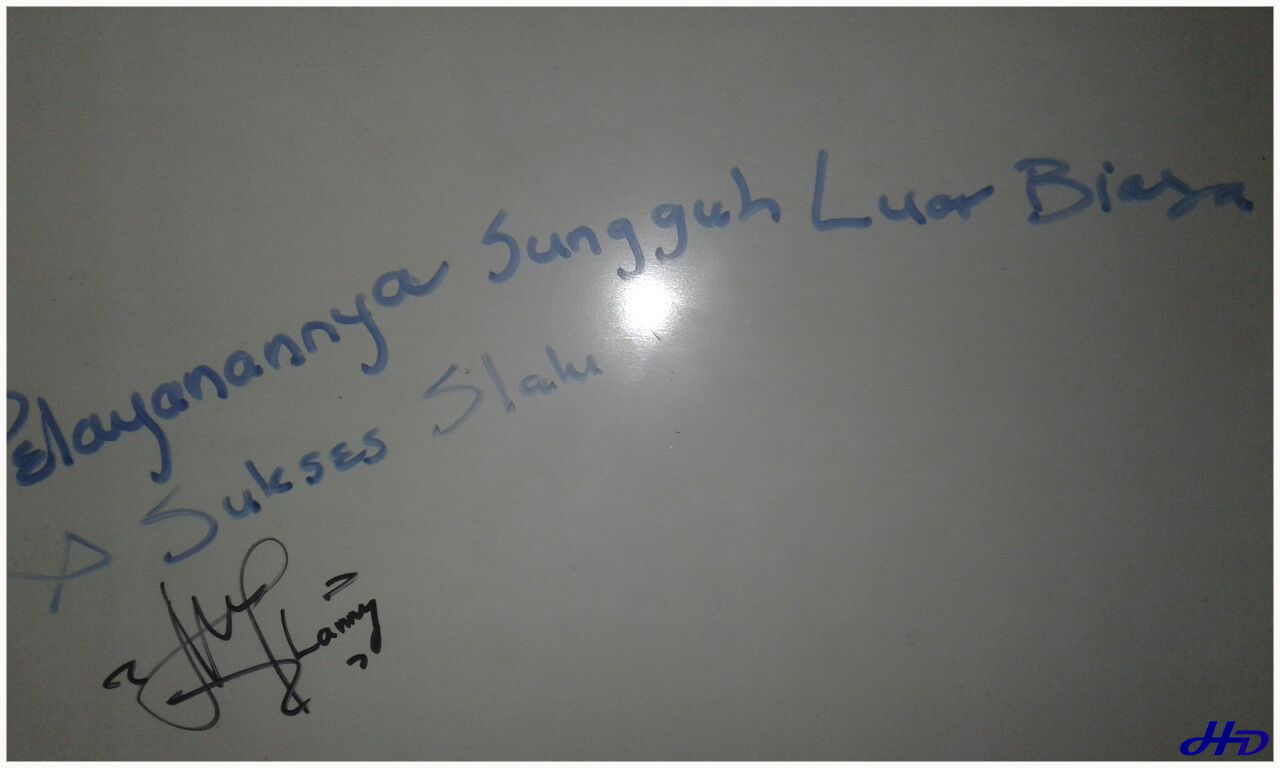 Pelayanannya Sungguh Luar Biasa
Sukses Slalu
Lanny
HD